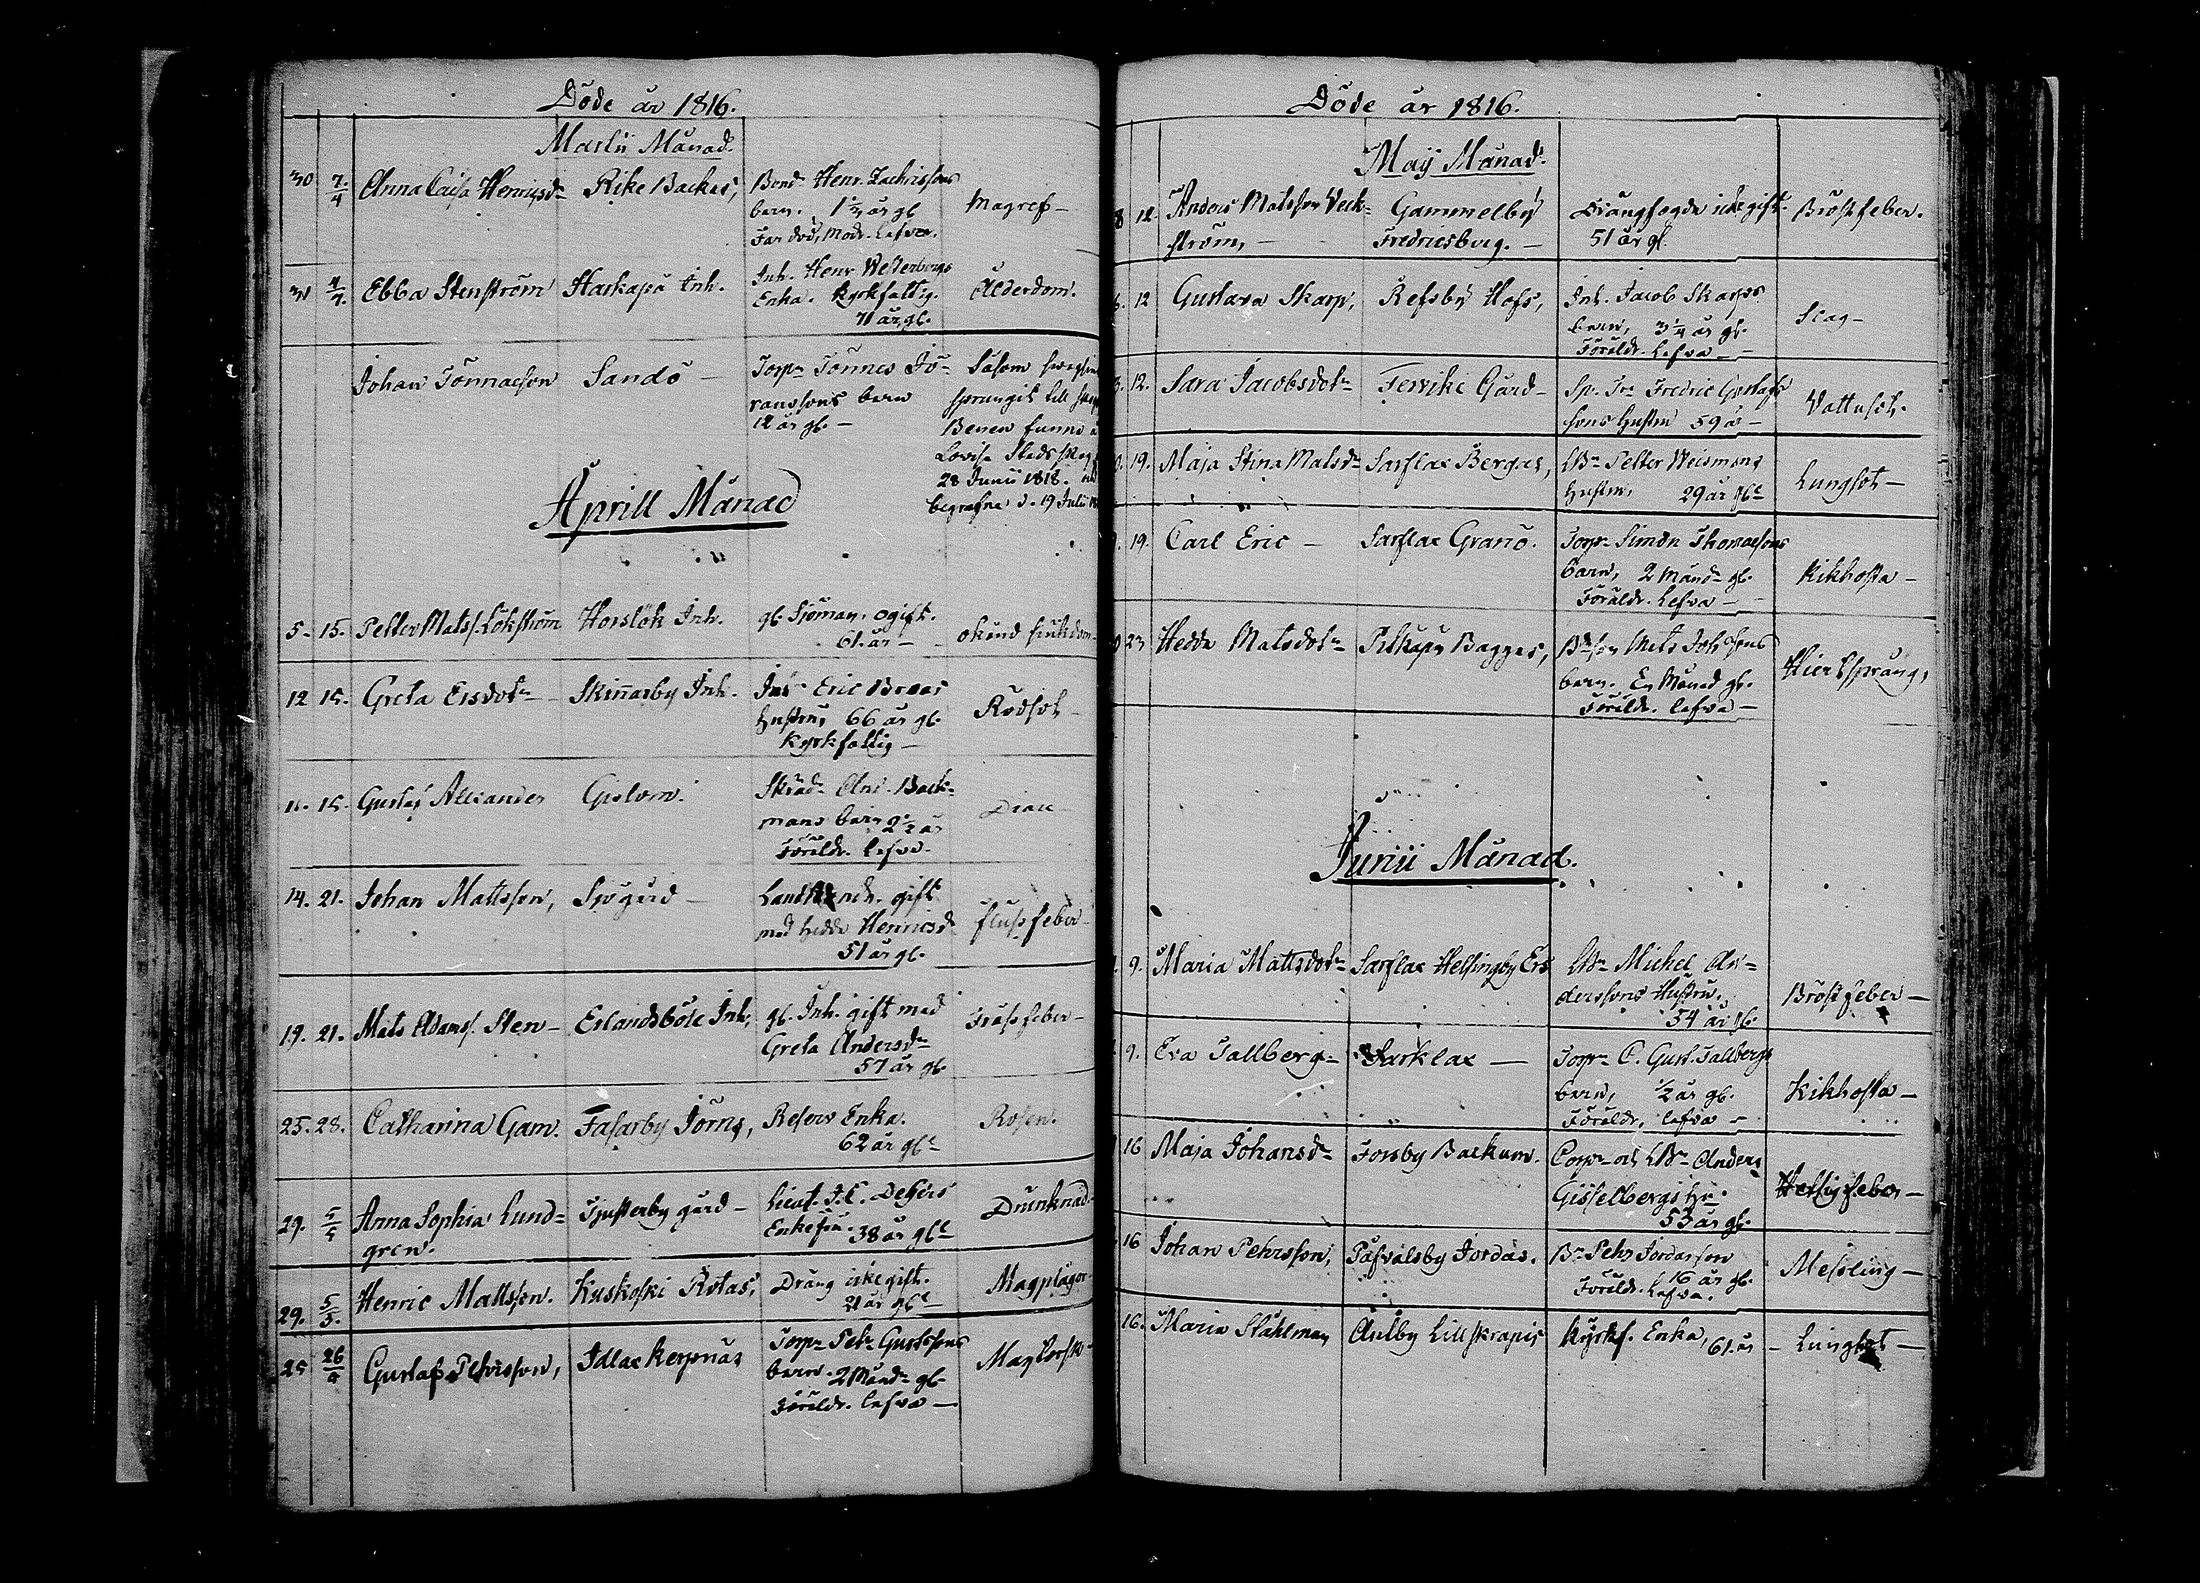 Döde år 1816.
Martii Månad.
30 7/4 Anna Caisa Henricsdr Rike Backas, Bond. Henr. Zachrissons
barn. 1 1/2 år gl. Magref
Far död, Modr. Lefva.
31 4/4. Ebba Stenström Harkapä Inh. Inh. Henr Westerbergs
Enka. Kyrkfattig. Ålderdom.
71 år gl.
Johan Tönnaeson Sandö Torpr Tönnes Jö=
ranssons barn
12 år gl.
Såsom
sprungit till
Benen funne
Lovisa Stads
28 Junii 1818.
begrafne d. 19 Julii
Aprill Månad
5. 15. Petter Mats. Lökström Horslök Inh. gl. Sjöman, ogift. okänd sjukdom
61. år
12 15. Greta Ersdotr Skinnarby Inh. Inh Eric Braas
Hustru, 66 år gl. Rödsot
Kyrkfattig
11. 15. Gustaf Alexander Gislom. Skräd. And. Back=
mans barn 2 1/2 år
Föräldr. lefva.
14. 21. Johan Mattsson, Sjögård gift
med Hedda Henricsd
51 år gl.
flussfeber
19. 21. Mats Adamss. Sten Erlandsböle Inh, gl. Inh. gift med
Greta Andersdr
57 år gl.
Frossfeber
25. 28. Catharina Gam. Fasarby Jörns, Reserv Enka.
62 år gl.
Rosen.
29. 5/5 Anna Sophia Lund=
gren. Tjusterby gård Lieut. J. C. DeGeers
Enkefru. 38 år gl.
Drunknad
29. 5/5. Henric Mattsson. Kuskoski Rotas, Dräng icke gift.
21 år gl.
Magplågor
25 26/4 Gustaf Pehrsson, Idlax Kerpnäs Torpr Pehr Gustssons
barn. 2 Månd. gl.
Föräldr. lefva
Döde år 1816.
Maij Månad.
8 12. Anders Matsson Veck=
ström, Gammelby
Fredricsberg. icke gift.
51 år gl.
Bröstfeber.
12 Gustava Skarp, Refsby Hofs, Inh. Jacob Skarps
barn, 3 1/4 år gl.
Föräldr. Lefva
Slag
12. Sara Jacobsdotr Tervike Gård Sp. Tr. Fredric Gustafs
sons Hustru 59 år
Vattusot.
19. Maja Stina Matsdr Sarflax Bergas, LBr Petter Weismans
Hustru, 29 år gl.
Lungsot
19. Carl Eric Sarflax Granö. Torpr Simon Thomaesons
barn, 2 Månd gl.
Föräldr. Lefva
Kikhosta
23 Hedda Matsdotr Pitkäpä Bagges, Mats Johssons
barn. En Månad gl.
Föräldr. lefva
Hiertsprång,
Junii Månad.
9. Maria Mattsdotr Sarflax Helsingby Ers LBr Michel An=
derssons Hustru.
54 år gl.
Bröstfeber
9. Eva Tallberg Sarklax Torpr C. Gust. Tallbergs
barn, 1/2 år gl.
Föräldr. lefva
Kikhosta
16 Maja Johansdr Forsby Backum. Corpr och LBr Anders
Gisselbergs Hu.
53 år gl.
Hetsigfeber
16 Johan Pehrsson, Påfvalsby Jordas. Br Pehr Jordansson
16 år gl.
Föräldr. Lefva.
Messling
16. Maria Stålman, Andby Lillskrapis Kyrkf. Enka, 61. år Lungsot